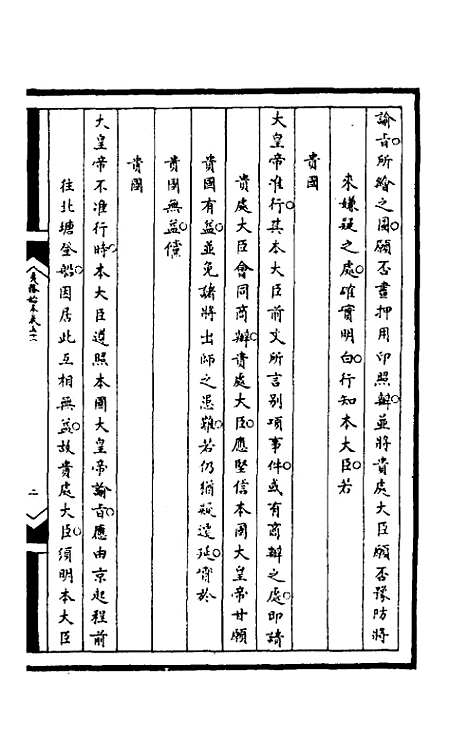 諭旨所繪之圖願否畫押用印照辦並將貴處大臣願否豫防將
來嫌疑之處確實明白行知本大臣若
貴國
大皇帝准行其本大臣前文所言別項事件或有商辦之處即請
貴處大臣會同商辦貴處大臣應堅信本國大皇帝甘願
貴國有益並免諸將出師之患難若仍猶疑遷延實於
貴國無益儻
貴國
大皇帝不准行時本大臣遵照本國大皇帝諭旨應由京起程前
往北塘登船因居此互相無益故貴處大臣須明本大臣
二